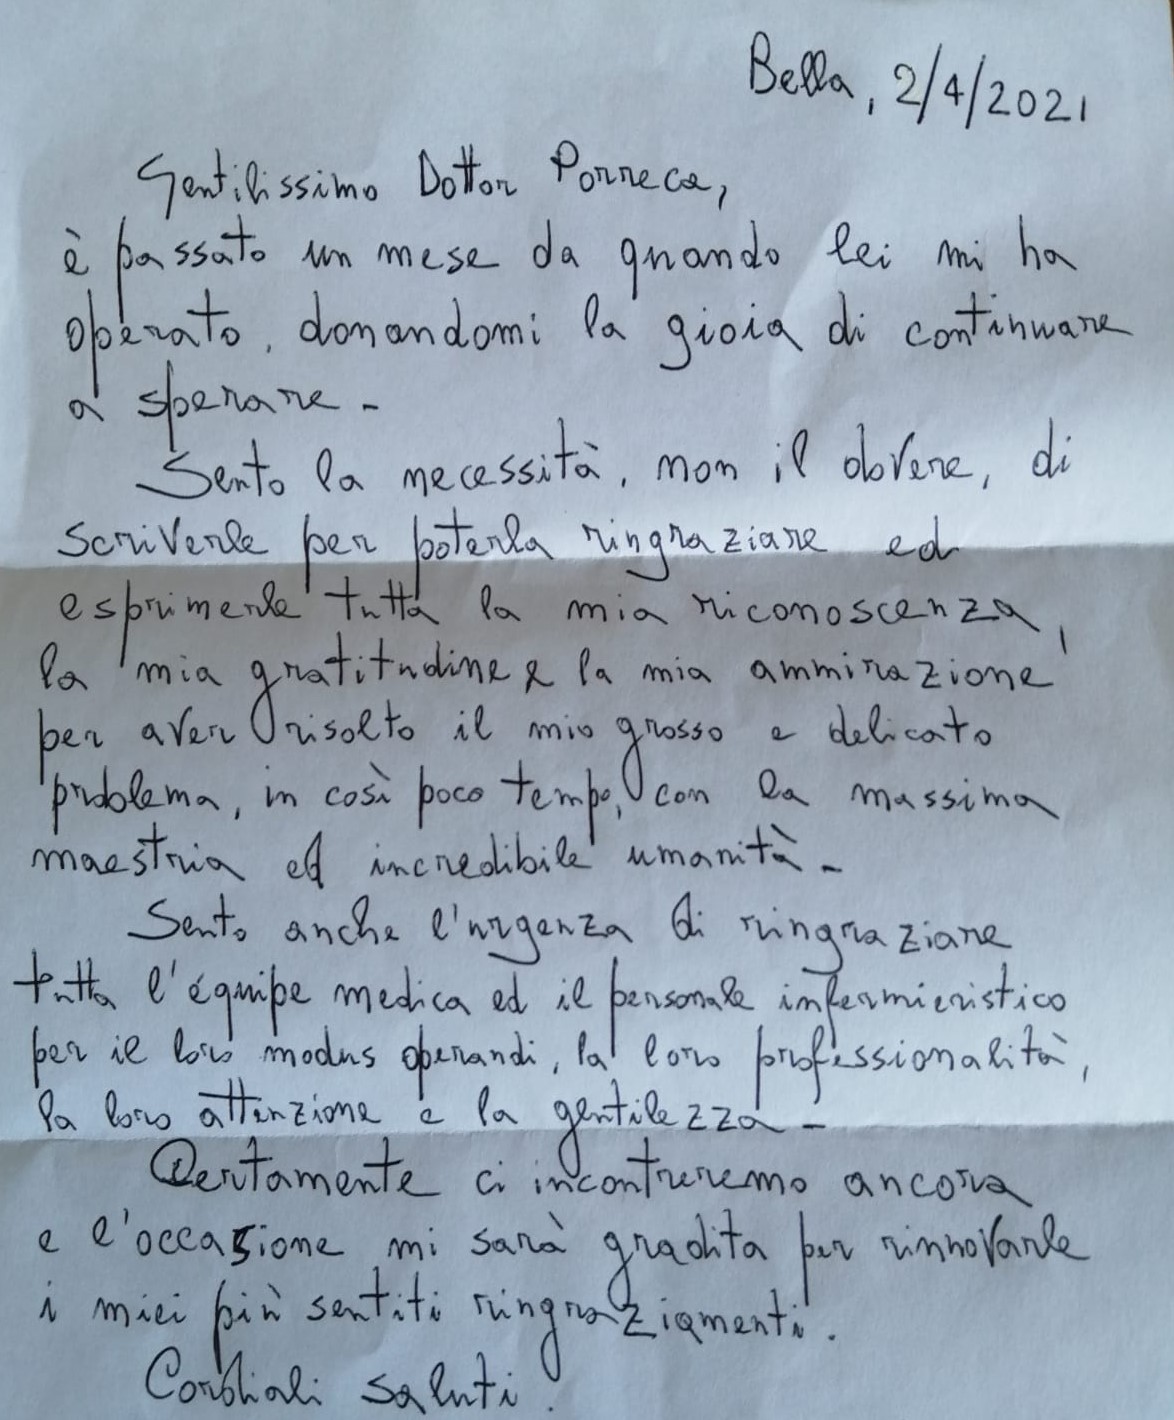 Bella, 2/4/2021
Gentilissimo Dottor Porreca,
è passato un mese da quando lei mi ha
operato, donandomi la gioia di continuare
a sperare -
Sento la necessità, non il dovere, di
scriverle per poterla ringraziare ed
esprimerle tutta la mia riconoscenza,
la mia gratitudine e la mia ammirazione
per aver risolto il mio grosso e delicato
problema, in così poco tempo, con la massima
maestria ed incredibile umanità -
Sento anche l'urgenza di ringraziare
tutta l'équipe medica ed il personale infermieristico
per il loro modus operandi, la loro professionalità,
la loro attenzione e la gentilezza -
Certamente ci incontreremo ancora
e l'occasione mi sarà gradita per rinnovarle
i miei più sentiti ringraziamenti.
Cordiali saluti!